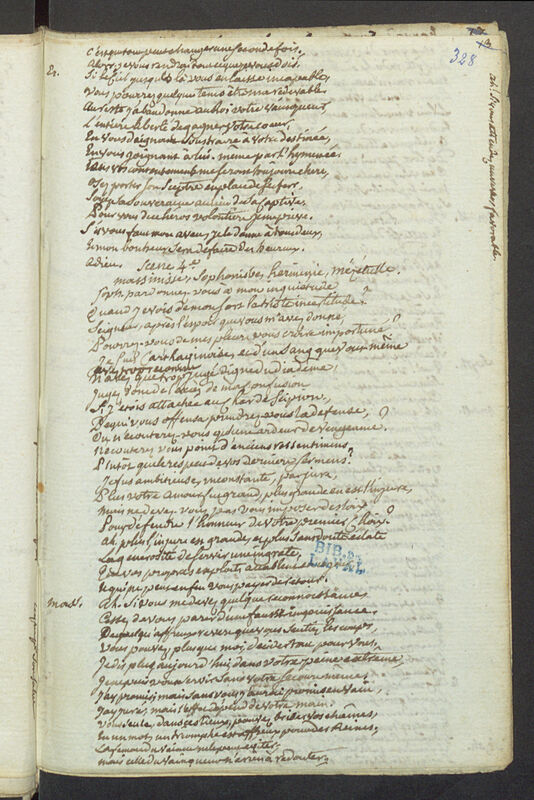 328
c'est qu'on peut changer une seconde fois.
Alors je vous rendrai tout ce que je vous dois.
Si le Ciel jusques là vous en laisse incapable,
vous pourrez quelque tems être ma redevable
Au reste j'abandonne au Roi votre vainqueur,
L'entière liberté de gagner votre cœur.
En vous daignant soustraire à votre destinée,
En vous joignant à lui-même par l'hymenée,
toujours chere,
Osez porter son Sceptre en place de
Soyez la Souveraine au lieu de la Captive.
Pour vous de ce héros volontiers je me prive.
Si vous fau mon aveu, je le donne à tous deux,
Et mon bonheur sera de faire des heureux.
adieu. Scene 4.e
massinisse, Sophonisbe, herminie, mézetulle.
Soph. pardonnez-vous à mon inquiétude
Quand je vois de mon sort la triste incertitude?
Seigneur, après l'époux que vous m'avez donné,
Pourrez-vous de mes pleurs vous croire importuné?
Je suis Carthaginoise, et d'un sang que vous-même
N'avez que trop jugé digne du diadême;
Jugez donc de l'excès de ma confusion
Si j'étois attachée au char de Scipion,
De qui vous offensa prendrez-vous la défense,
Ou n'écouterez-vous qu'une ardeur de vengeance?
N'écoutez-vous point d'anciens ressentimens,
Plutôt que le respect de vos derniers sermens?
Je fus ambitieuse, inconstante, parjure,
Plus votre amour fut grand, plus grande en est l'injure,
mais ne devez-vous pas vous imposer des loix
Pour défendre l'honneur de votre premier choix?
Ah, plus l'injure est grande, et plus sans doute éclate
La générosité de servir une ingrate,
Que vos propres exploits
Et qui ne peut enfin vous payer de retour.
mass. Ah, si vous me devez quelque reconnoissance
Cessez de vous parer d'un fausse impuissance.
De quelque affreux revers que vous sentiez les coups
Vous pouvez, plus que moi, décider tout pour vous.
Je dis plus, aujourd'hui dans votre peine extrême,
Je ne puis vous servir sans votre secours même.
J'ai promis, mais sans vous j'aurai promis en vain,
J'ai juré, mais l'effet dépend de votre main.
Vous seule, dans ces lieux, pouvez briser vos chaînes,
En un mot, un triomphe est affreux pour des Reines.
La femme du vaincu ne le peut éviter,
mais celle du vainqueur n'a rien à redouter.
BIB. DE
LAVAL